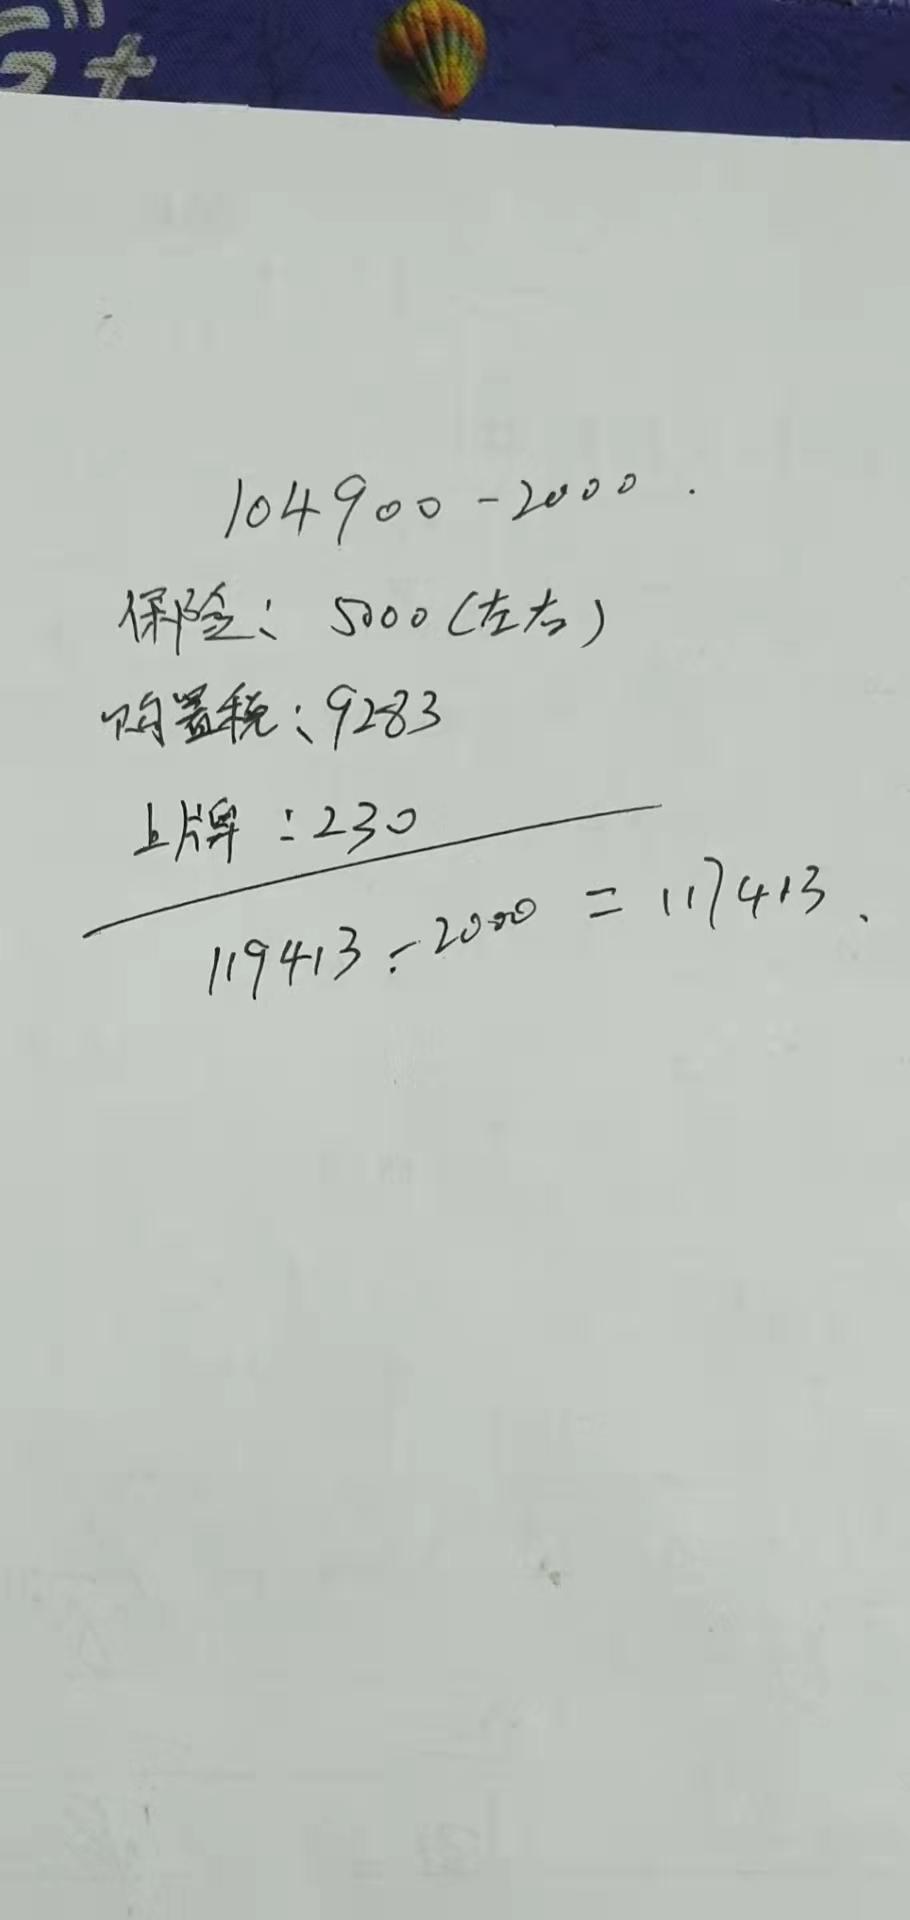 104900-2000.
保险：5000（左右）
购置税：9283
上牌：230
119413-2000=117413.